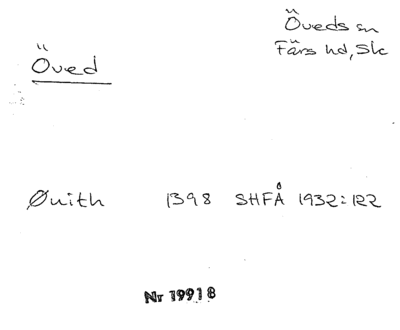 Öveds sn
Färs hd, Sk
Öved
Øuith 1398 SHFÅ 1932:122
Nr 19918